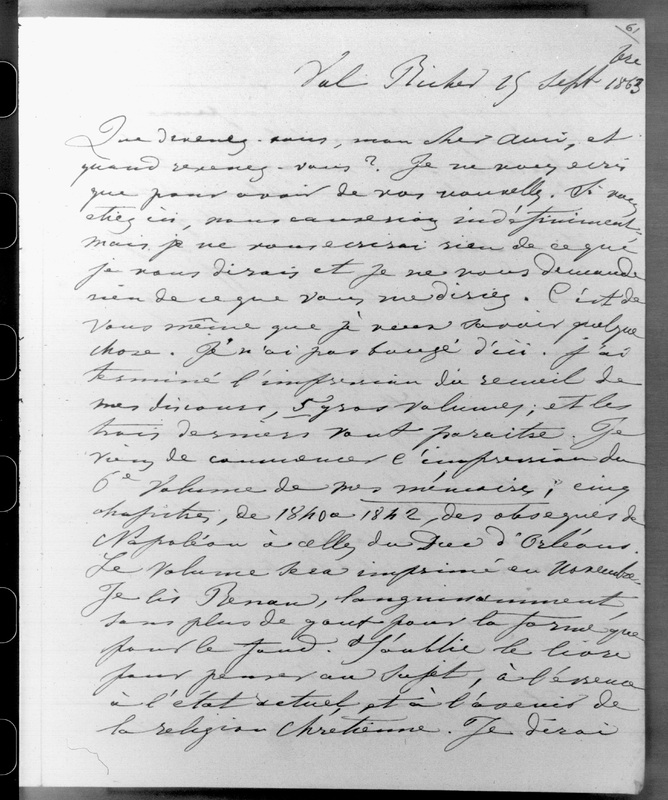 61
Val Richer 25 Sept bre 1863
Que devenez-vous, mon cher ami, et
quand revenez-vous ? Je ne vous écris
que pour avoir de vos nouvelles. Si vous
étiez ici, nous causerions indéfiniment
mais je ne vous écrirai rien de ce que
je vous dirais et je ne vous demande
rien de ce que vous me diriez. C'est de
vous même que je veux savoir quelque
chose. Je n'ai pas bougé d'ici. J'ai
terminé l'impression du recueil de
mes discours, 5 gros volumes ; et les
trois derniers vont paraitre. Je
viens de commencer l'impression du
6e volume de mes mémoires ; cinq
chapitres, de 1840 a 1842, des obsèques de
Napoléon à celles du Duc d'Orléans.
Le volume sera imprimé en Novembre
Je lis Renan, languissamment
sans plus de gout pour la forme que
pour le fond. J'oublie le livre
pour penser au sujet, à l'essence
à l'état actuel, et à l'avenir de
la religion Chrétienne. Je dirai